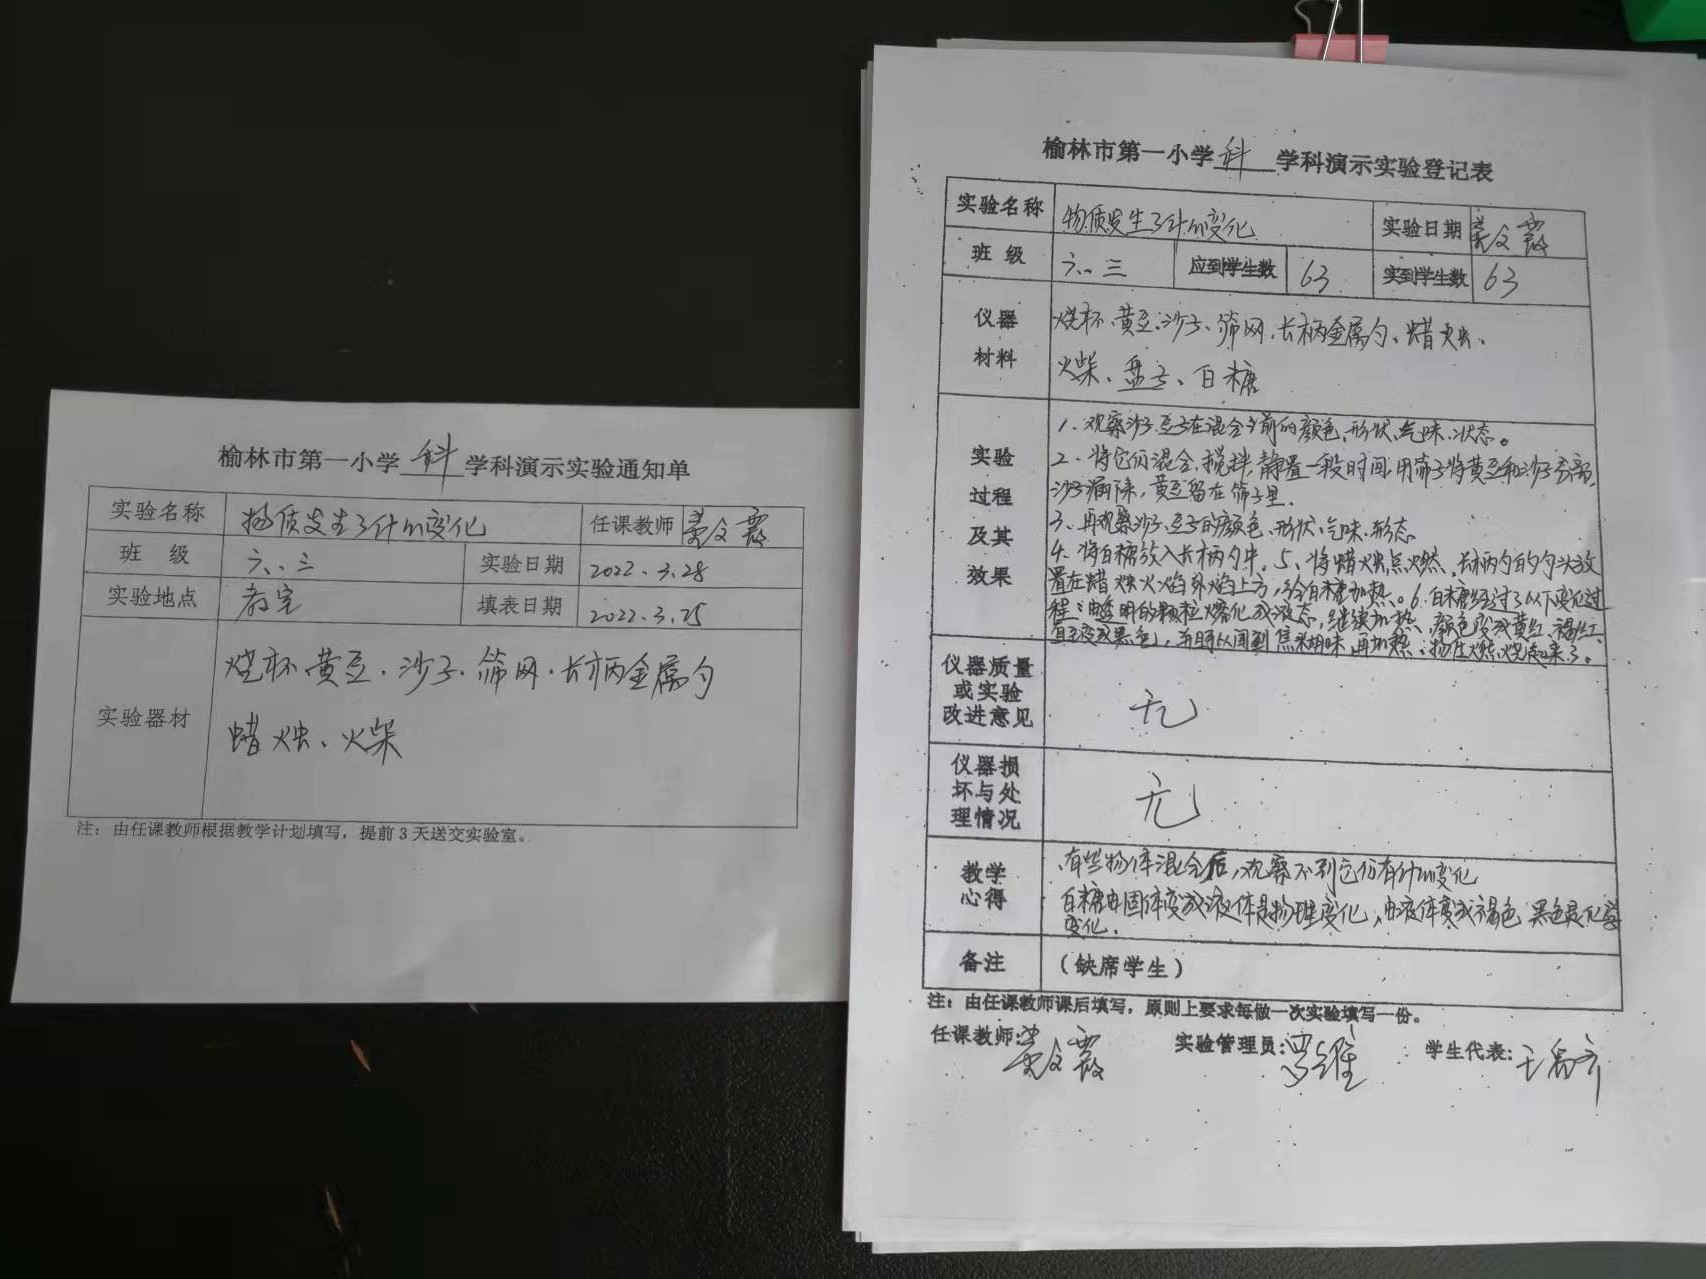 榆林市第一小学 科 学科演示实验通知单
实验名称 物质发生了什么变化 任课教师
班 级 六、三 实验日期 2022.3.28
实验地点 教室 填表日期 2022.3.25
实验器材 烧杯、黄豆、沙子、筛网、长柄金属勺
蜡烛、火柴
注：由任课教师根据教学计划填写，提前3天送交实验室。
榆林市第一小学 科 学科演示实验登记表
实验名称 物质发生了什么变化 实验日期
班 级 六、三 应到学生数 63 实到学生数 63
仪器材料 烧杯、黄豆、沙子、筛网、长柄金属勺、蜡烛、
火柴、盘子、白糖
实验过程及其效果
1、观察沙子、豆子在混合之前的颜色、形状、气味、状态。
2、将它们混合、搅拌、静置一段时间，用筛子将黄豆和沙子分离，
沙子漏下来，黄豆留在筛子里。
3、再观察沙子、豆子的颜色、形状、气味、形态。
4、将白糖放入长柄勺中。5、将蜡烛点燃，长柄勺的勺头放
置在蜡烛火焰外焰上方，给白糖加热。6、白糖经过了以下变化过
程：由透明的颗粒熔化成液态，继续加热，颜色变成黄红、褐红、
直至变成黑色，并且从闻到焦糊味，再加热，物质燃烧起来了。
仪器质量或实验改进意见 无
仪器损坏与处理情况 无
教学心得 有些物体混合后，观察不到它们有什么变化
白糖由固体变成液体是物理变化，由液体变成褐色、黑色是化学
变化。
备注 （缺席学生）
注：由任课教师课后填写，原则上要求每做一次实验填写一份。
任课教师: 实验管理员: 学生代表: